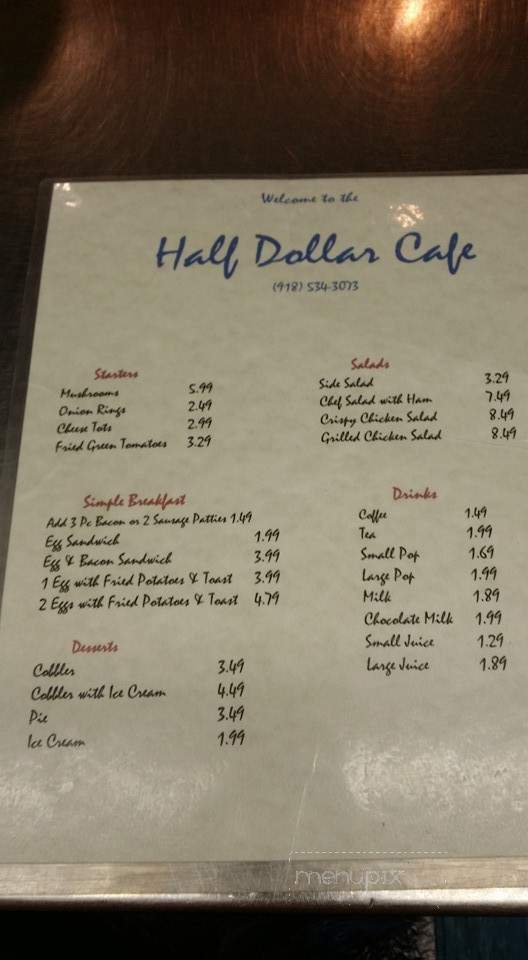 Welcome to the
Half Dollar Cafe
(918) 534-3073
Starters
Mushrooms 5.99
Onion Rings 2.49
Cheese Tots 2.99
Fried Green Tomatoes 3.29
Salads
Side Salad 3.29
Chef Salad with Ham 7.49
Crispy Chicken Salad 8.49
Grilled Chicken Salad 8.49
Simple Breakfast
Add 3 Pc Bacon or 2 Sausage Patties 1.49
Egg Sandwich 1.99
Egg & Bacon Sandwich 3.99
1 Egg with Fried Potatoes & Toast 3.99
2 Eggs with Fried Potatoes & Toast 4.79
Drinks
Coffee 1.49
Tea 1.99
Small Pop 1.69
Large Pop 1.99
Milk 1.89
Chocolate Milk 1.99
Small Juice 1.29
Large Juice 1.89
Desserts
Cobbler 3.49
Cobbler with Ice Cream 4.49
Pie 3.49
Ice Cream 1.99
menupix